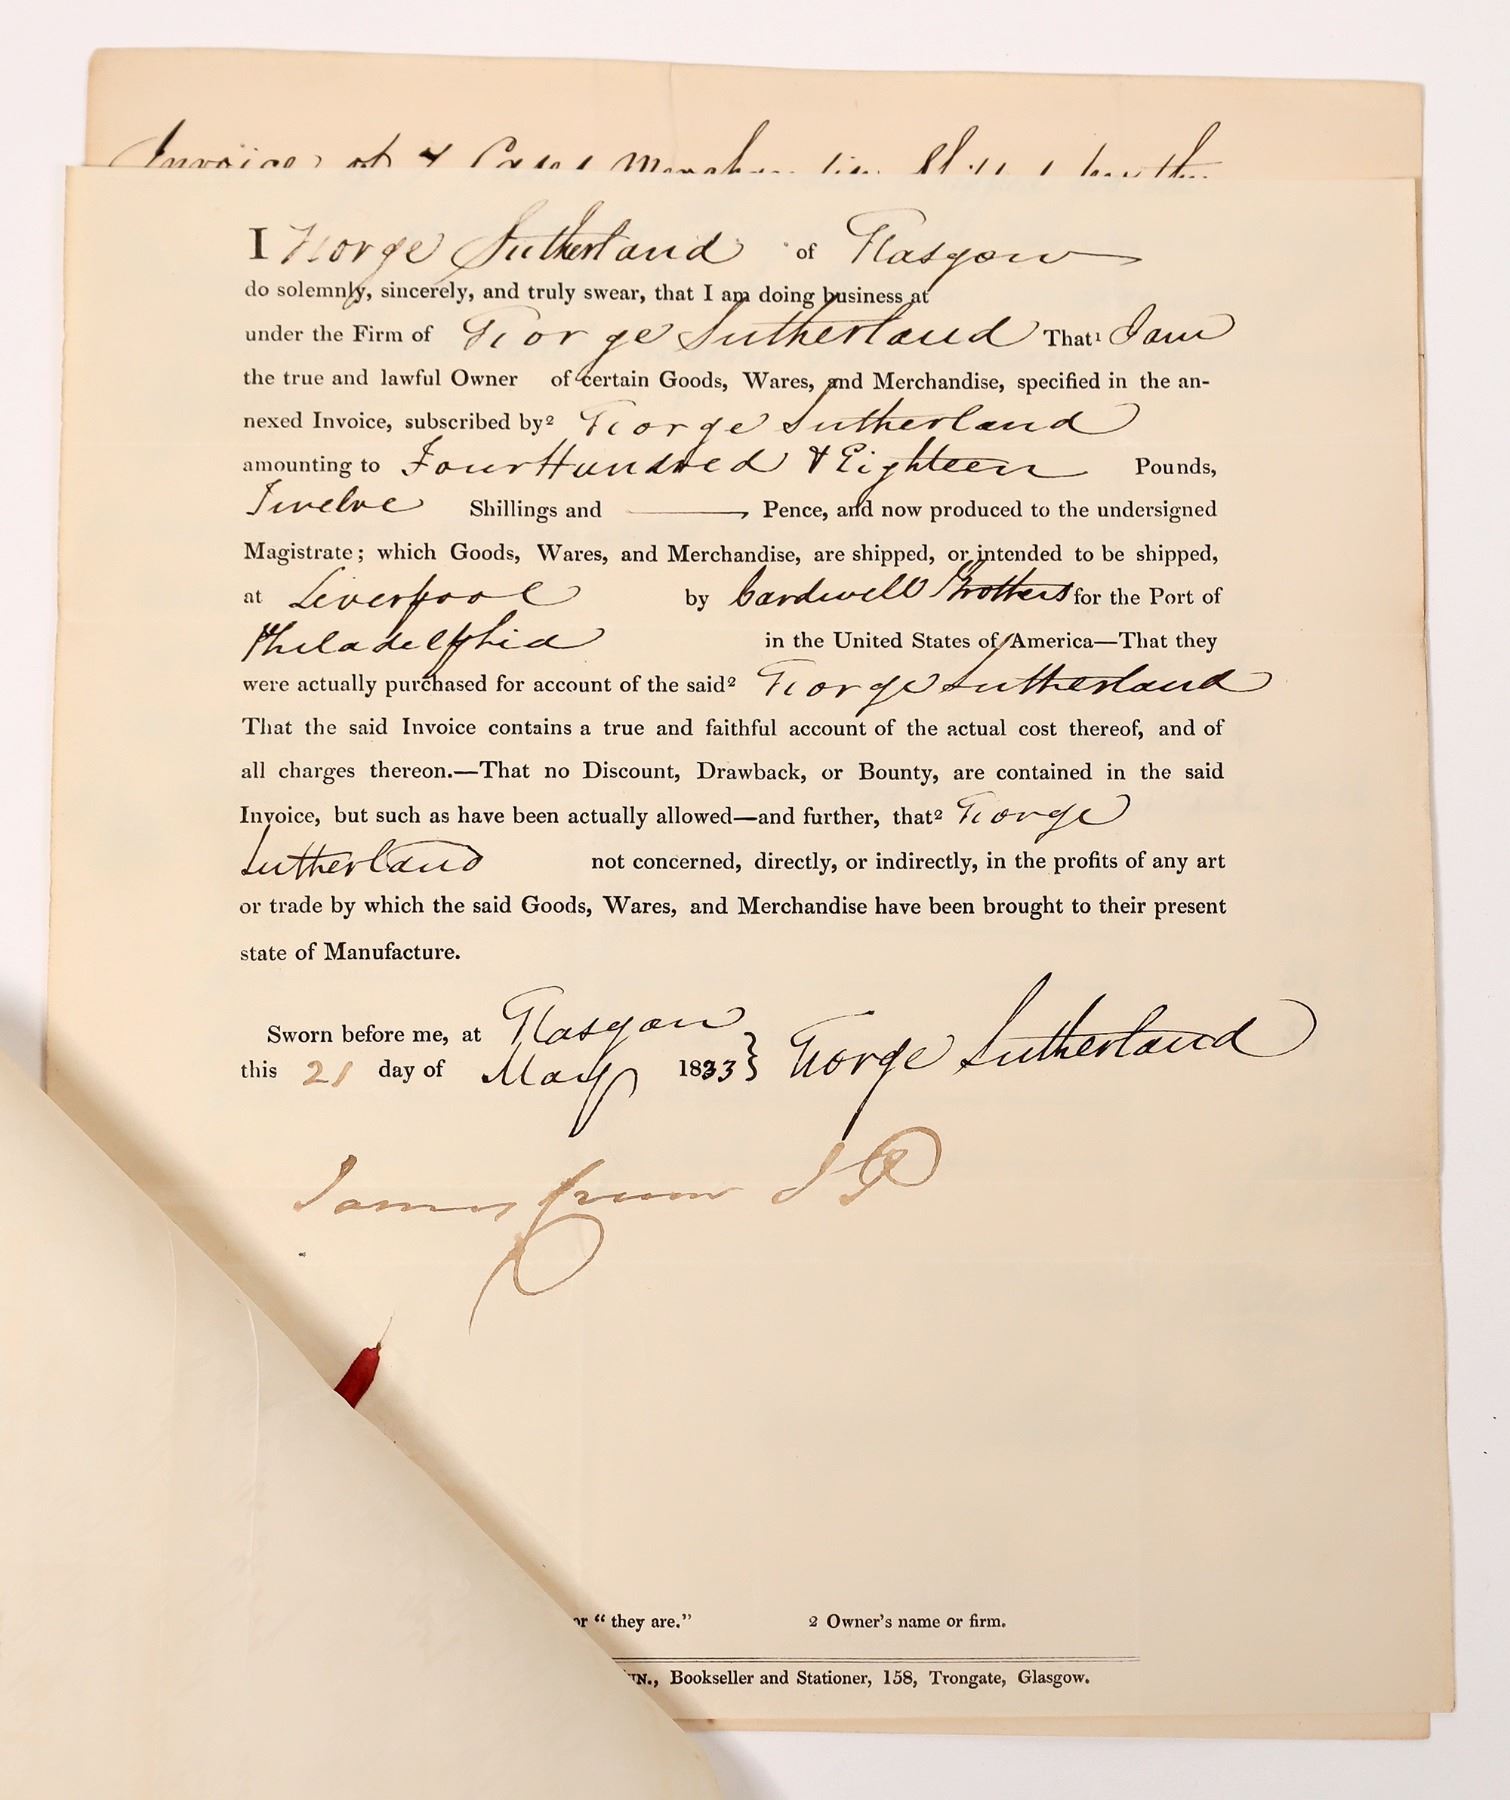 Invoice of 4 Cases Merchandise Shipped by the
I George Sutherland of Glasgow
do solemnly, sincerely, and truly swear, that I am doing business at
under the Firm of George Sutherland That¹ I am
the true and lawful Owner of certain Goods, Wares, and Merchandise, specified in the an-
nexed Invoice, subscribed by² George Sutherland
amounting to Four Hundred & Eighteen Pounds,
Twelve Shillings and —— Pence, and now produced to the undersigned
Magistrate; which Goods, Wares, and Merchandise, are shipped, or intended to be shipped,
at Liverpool by Cardwell Brothers for the Port of
Philadelphia in the United States of America—That they
were actually purchased for account of the said² George Sutherland
That the said Invoice contains a true and faithful account of the actual cost thereof, and of
all charges thereon.—That no Discount, Drawback, or Bounty, are contained in the said
Invoice, but such as have been actually allowed—and further, that² George
Sutherland not concerned, directly, or indirectly, in the profits of any art
or trade by which the said Goods, Wares, and Merchandise have been brought to their present
state of Manufacture.
Sworn before me, at Glasgow
this 21 day of May 1833} George Sutherland
James Crum J P
or “ they are.” 2 Owner's name or firm.
UN., Bookseller and Stationer, 158, Trongate, Glasgow.